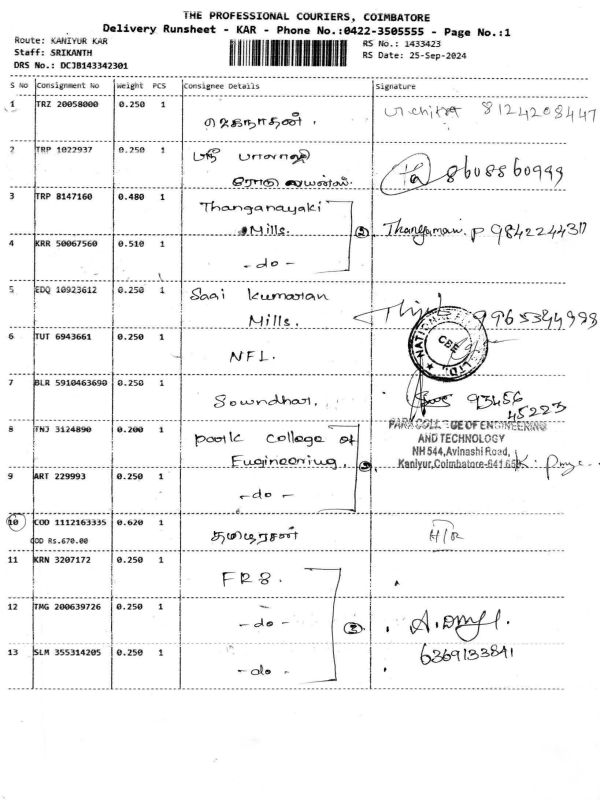 THE PROFESSIONAL COURIERS, COIMBATORE
Delivery Runsheet - KAR - Phone No.:0422-3505555 - Page No.:1
Route: KANIYUR KAR
RS No.: 1433423
Staff: SRIKANTH
RS Date: 25-Sep-2024
DRS No.: DCJB143342301
S No Consignment No Weight PCS Consignee Details Signature
1 TRZ 20058000 0.250 1 8124208447
ஜெகநாதன்.
2 TRP 1022937 0.250 1 ஸ்ரீ பாலாஜி
8608860999
3 TRP 8147160 0.480 1 Thanganayaki
Mills. 2 Thangamani. P 9842244317
4 KRR 50067560 0.510 1
- do -
5 EDQ 10923612 0.250 1 Saai Kumaran
Mills. 9965344998
6 TUT 6943661 0.250 1 NATIONAL
NFL. CBE LTD
7 BLR 5910463690 0.250 1
Soundhar. 93456
45223
8 TNJ 3124890 0.200 1 park College of
Engineering. 2
PARK COLLEGE OF ENGINEERING
AND TECHNOLOGY
NH 544, Avinashi Road,
Kaniyur, Coimbatore-641 659
9 ART 229993 0.250 1
- do -
10 COD 1112163335 0.620 1 தமிழரசன்
COD Rs.670.00
11 KRN 3207172 0.250 1
12 TMG 200639726 0.250 1
- do - 2
13 SLM 355314205 0.250 1 6369133841
- do -